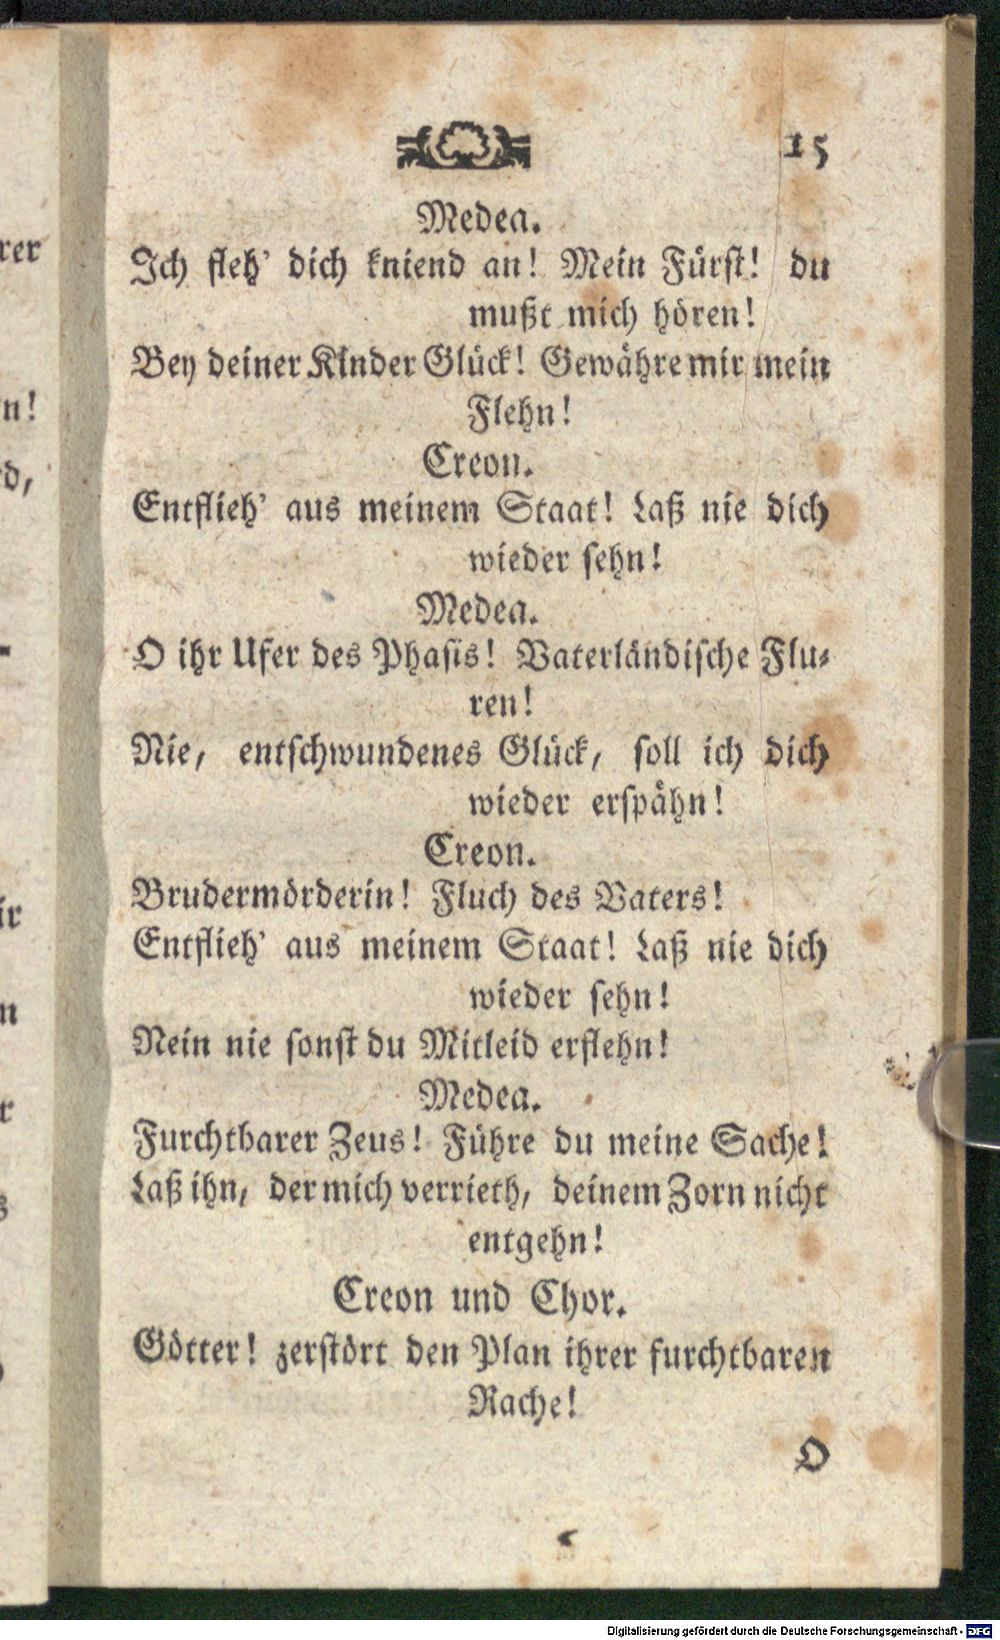 15
Medea.
Ich fleh' dich kniend an! Mein Fürst! du
mußt mich hören!
Bey deiner Kinder Glück! Gewähre mir mein
Flehn!
Creon.
Entflieh' aus meinem Staat! Laß nie dich
wieder sehn!
Medea.
O ihr Ufer des Phasis! Vaterländische Flu-
ren!
Nie, entschwundenes Glück, soll ich dich
wieder erspähn!
Creon.
Brudermörderin! Fluch des Vaters!
Entflieh' aus meinem Staat! Laß nie dich
wieder sehn!
Nein nie sonst du Mitleid erflehn!
Medea.
Furchtbarer Zeus! Führe du meine Sache!
Laß ihn, der mich verrieth, deinem Zorn nicht
entgehn!
Creon und Chor.
Götter! zerstört den Plan ihrer furchtbaren
Rache!
O
rer
n!
d,
-
ir
n
r
Digitalisierung gefördert durch die Deutsche Forschungsgemeinschaft - DFG